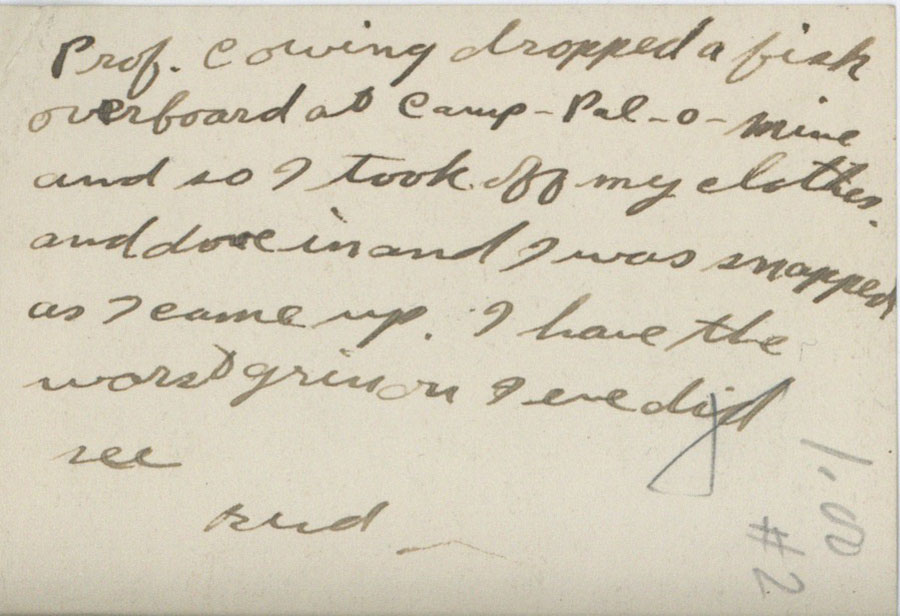 Prof. Cowing dropped a fish
overboard at Camp-Pal-o-mine
and so I took off my clothes.
and dove in and I was snapped
as I came up. I have the
worst grin on I eve did
see
Bud
1.00
#2